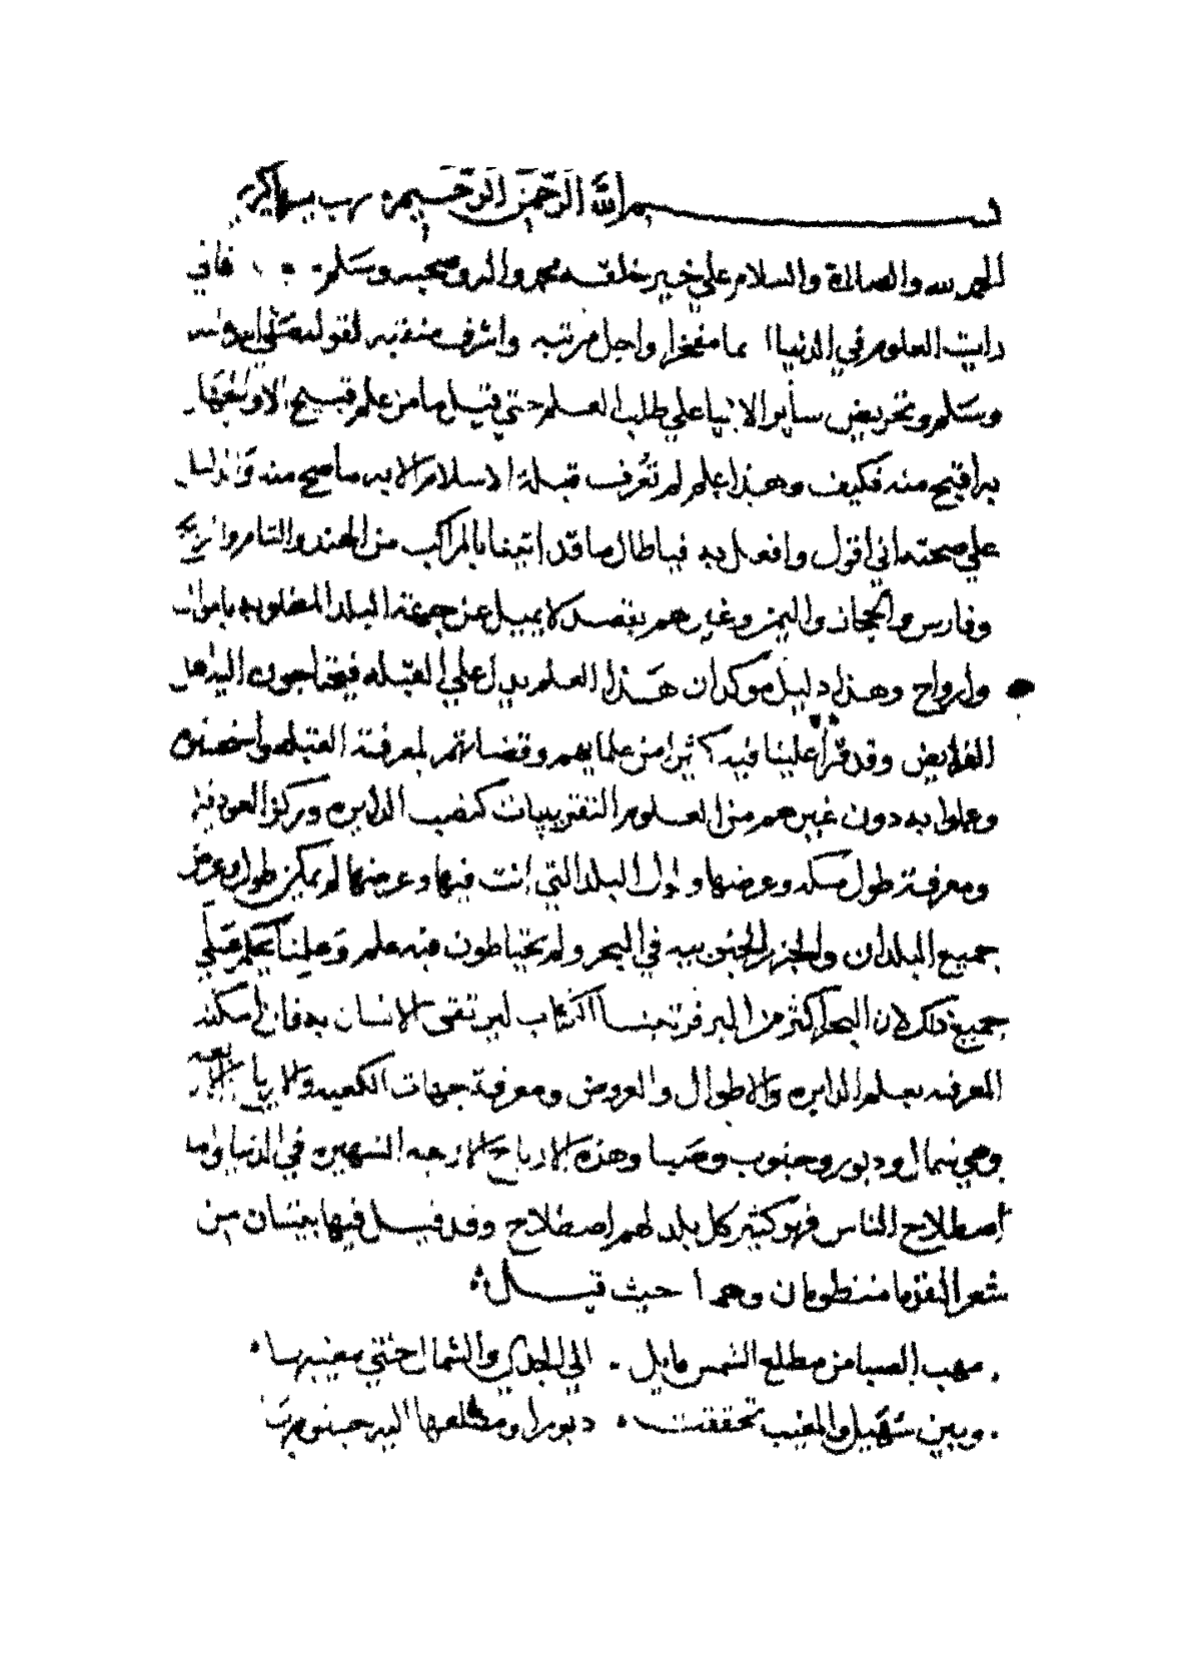 بسم الله الرحمن الرحيم رب يسر يا كريم
الحمد لله والصلاة والسلام على خير خلقه محمد واله وصحبه وسلم فاني
رايت العلوم في الدنيا مفخرا واجل مرتبه واشرف منقبه لقوله صلى الله عليه
وسلم وتحريض ساير الانبيا على طلب العلم حتى قيل ما من علم قبيح الا والجهل
به اقبح منه فكيف وهذا علم لم تعرف قبلة الاسلام الا به ما صح منه والدليل
على صحته اني اقول وافعل به فيا طال ما قد اتينا بالمراكب من الهند والشام والزنج
وفارس والحجاز واليمن وغيرهم بقصد لا يميل عن جهة البلد المطلوبه باموال
وارواح وهذا دليل موكد ان هذا العلم يدل على القبله فيحتاجون اليه اهل
الفرايض وقد قرا علينا فيه كثيرا من علمايهم وقضاتهم لمعرفة القبله واستحسنوه
وعملوا به دون غيرهم من العلوم التقريبيات كنصب الدايره وركز العود فيه
ومعرفة طول مكه وعرضها وطول البلد التي انت فيها وعرضها لم يمكن طول وعرض
جميع البلدان والجزر الجنوبيه في البحر ولم يحتاطون فيه علم وعلمنا يحكم على
جميع ذلك لان البحر اكثر من البر فرتبنا الكتاب ليرتقى الانسان به فان امكنه
المعرفه بعلم الدايره والاطوال والعروض ومعرفة جهات الكعبه والارياح الاربعه
وهي شمال ودبور وجنوب وصبا وهذه الارياح الاربعه الشهيره في الدنيا واما
اصطلاح الناس فهو كثير كل بلد لهم اصطلاح وقد قيل فيها بيتان من
شعر القدما منظومان وهما حيث قيل
مهب الصبا من مطلع الشمس مايل الى الجدي والشمال حتى مغيبها
وبين سهيل والمغيب تحققت دبورا ومطلعها اليه جنوبها